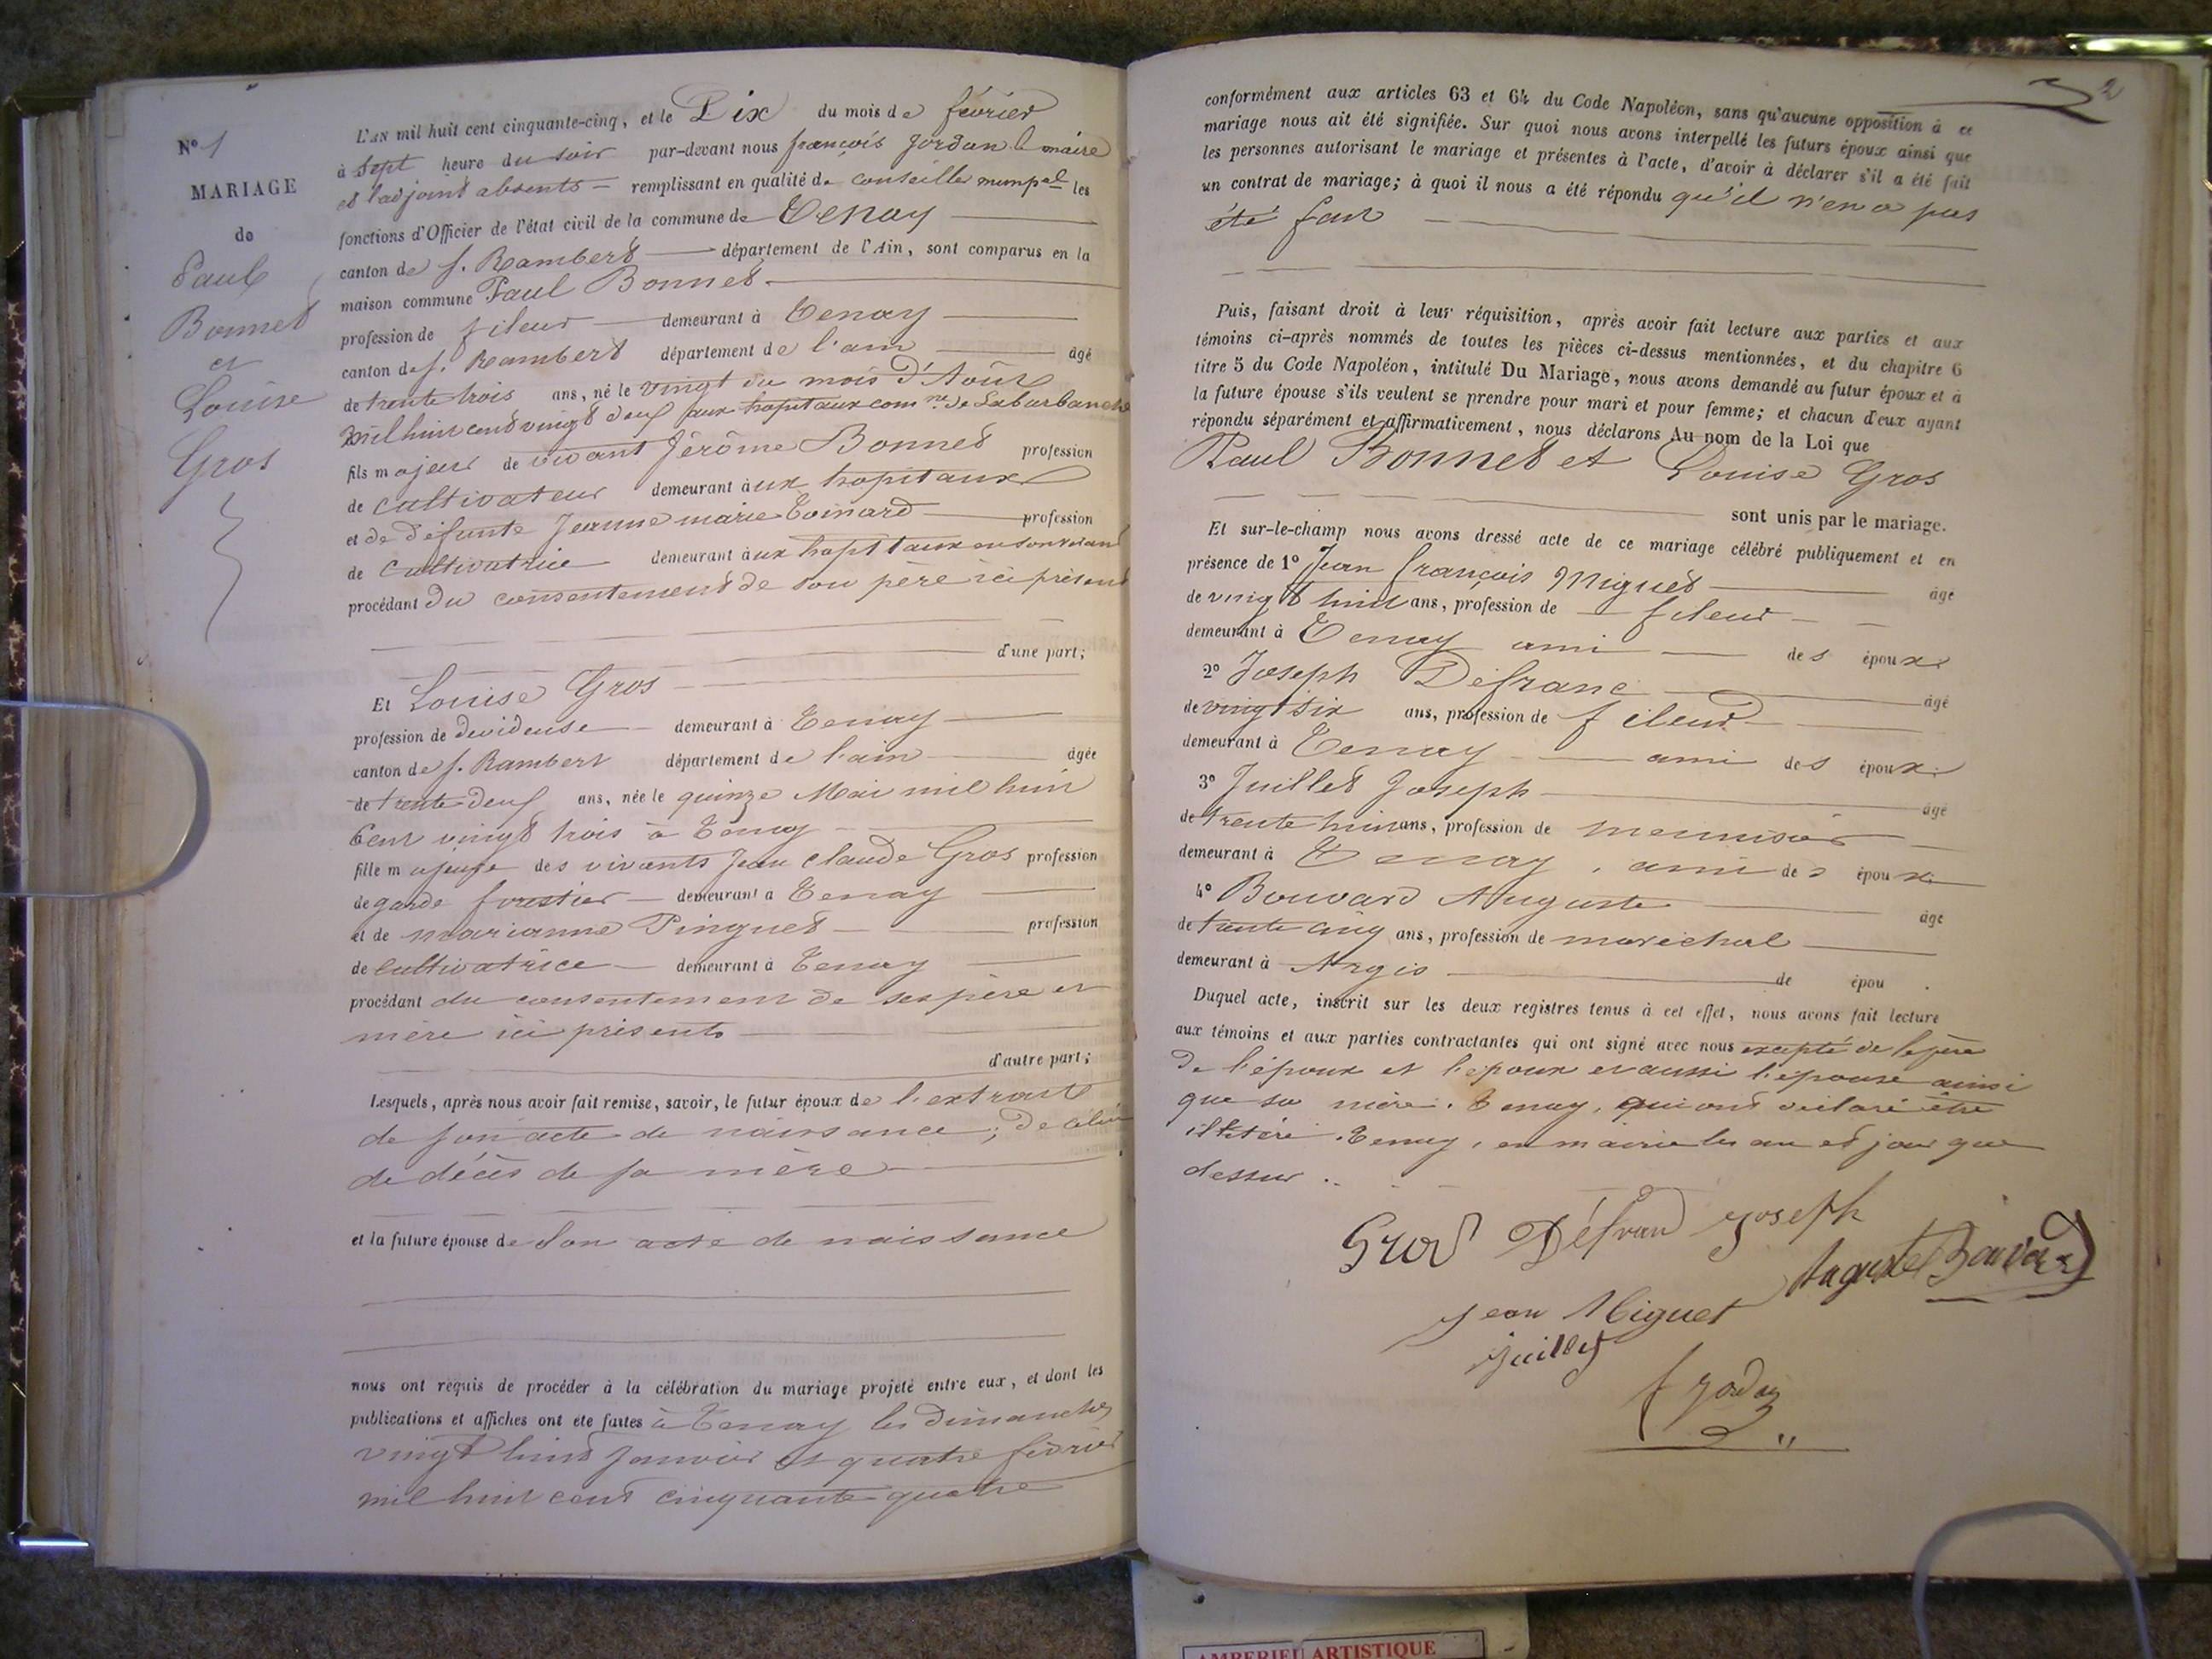 N° 1
MARIAGE
de
Paul
Bonnet
et
Louise
Gros
L'AN mil huit cent cinquante-cinq, et le Dix du mois de février
à sept heure du soir par-devant nous françois Jordan le maire
et l'adjoint absents remplissant en qualité de conseiller munpal les
fonctions d'Officier de l'état civil de la commune de Tenay
canton de S. Rambert département de l'Ain, sont comparus en la
maison commune Paul Bonnet
profession de fileur demeurant à Tenay
canton de S. Rambert département de l'ain âgé
de trente trois ans, né le vingt du mois d'Août
mil huit cent vingt deux aux hopitaux comne de
fils majeur de vivant Jérôme Bonnet profession
de cultivateur demeurant aux hopitaux
et de défunte Jeanne marie Toinard profession
de cultivatrice demeurant aux hopitaux en son vivant
procédant du consentement de son père ici présent
d'une part;
Et Louise Gros
profession de devideuse demeurant à Tenay
canton de S. Rambert département de l'ain âgée
de trente deux ans, née le quinze Mai mil huit
cent vingt trois à Tenay
fille majeure des vivants Jean claude Gros profession
de garde forestier demeurant à Tenay
et de marianne Pinguet profession
de cultivatrice demeurant à Tenay
procédant du consentement de ses père et
mère ici présents
d'autre part;
Lesquels, après nous avoir fait remise, savoir, le futur époux de l'extrait
de son acte de naissance; de celui
de décès de sa mère
et la future épouse de son acte de naissance
nous ont requis de procéder à la célébration du mariage projeté entre eux, et dont les
publications et affiches ont été faites à Tenay les dimanches
vingt huit Janvier et quatre février
mil huit cent cinquante quatre
2
conformément aux articles 63 et 64 du Code Napoléon, sans qu'aucune opposition à ce
mariage nous ait été signifiée. Sur quoi nous avons interpellé les futurs époux ainsi que
les personnes autorisant le mariage et présentes à l'acte, d'avoir à déclarer s'il a été fait
un contrat de mariage; à quoi il nous a été répondu qu'il n'en a pas
été fait
Puis, faisant droit à leur réquisition, après avoir fait lecture aux parties et aux
témoins ci-après nommés de toutes les pièces ci-dessus mentionnées, et du chapitre 6
titre 5 du Code Napoléon, intitulé Du Mariage, nous avons demandé au futur époux et à
la future épouse s'ils veulent se prendre pour mari et pour femme; et chacun d'eux ayant
répondu séparément et affirmativement, nous déclarons Au nom de la Loi que
Paul Bonnet et Louise Gros
sont unis par le mariage.
Et sur-le-champ nous avons dressé acte de ce mariage célébré publiquement et en
présence de 1° Jean françois Miguet âgé
de vingt huit ans, profession de fileur
demeurant à Tenay ami des époux
2° Joseph Défranc âgé
de vingt six ans, profession de fileur
demeurant à Tenay ami des époux
3° Juillet Joseph âgé
de trente huit ans, profession de menuisier
demeurant à Tenay, ami des époux
4° Bouvard Auguste âgé
de trente cinq ans, profession de maréchal
demeurant à Argis de épou .
Duquel acte, inscrit sur les deux registres tenus à cet effet, nous avons fait lecture
aux témoins et aux parties contractantes qui ont signé avec nous excepté de le père
de l'époux et l'époux et aussi l'épouse ainsi
que sa mère. Tenay, qui ont déclaré être
illétéré. Tenay, en mairie les an et jour que
dessus
Gros Défranc Joseph
Auguste Bouvard
Jean Miguet
Juillet
f Jordan
AMBERIEU ARTISTIQUE